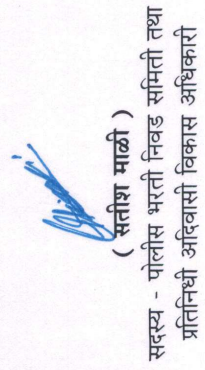 ( सतीश माळी )
सदस्य - पोलीस भरती निवड समिती तथा
प्रतिनिधी आदिवासी विकास अधिकारी